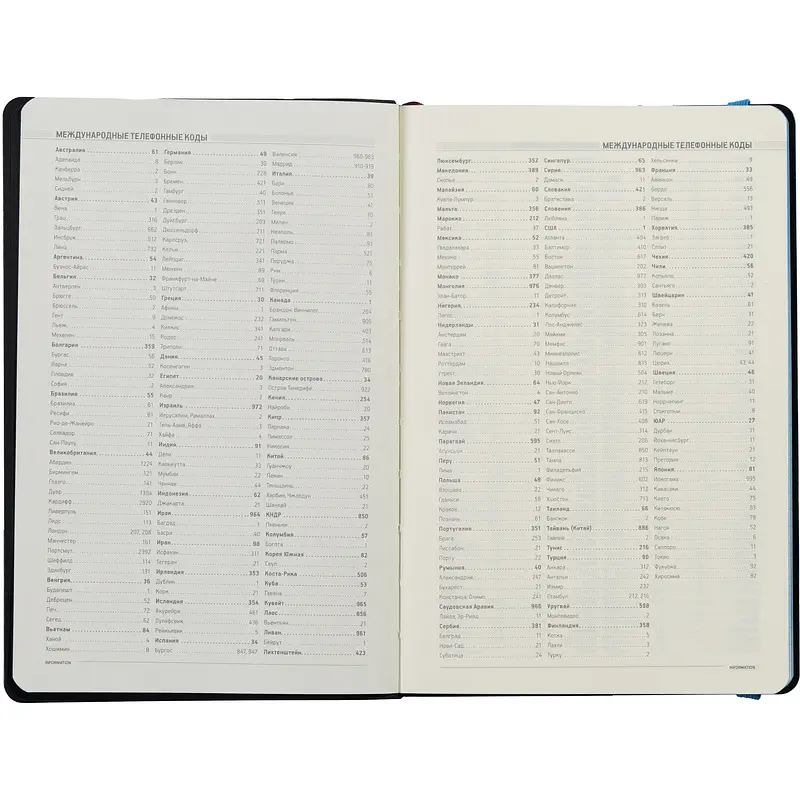 МЕЖДУНАРОДНЫЕ ТЕЛЕФОННЫЕ КОДЫ
Австралия 61
Аделаида 8
Канберра 2
Мельбурн 3
Сидней 2
Австрия 43
Вена 1
Грац 316
Зальцбург 662
Инсбрук 512
Линц 732
Аргентина 54
Буэнос-Айрес 11
Бельгия 32
Антверпен 3
Брюгге 50
Брюссель 2
Гент 9
Льеж 4
Мехелен 15
Болгария 359
Бургас 56
Варна 52
Пловдив 32
София 2
Бразилия 55
Бразилиа 61
Ресифи 81
Рио-де-Жанейро 21
Салвадор 71
Сан-Паулу 11
Великобритания 44
Абердин 1224
Бирмингем 121
Глазго 141
Дувр 1304
Кардифф 2920
Ливерпуль 151
Лидс 113
Лондон 207, 208
Манчестер 161
Портсмут 2392
Шеффилд 114
Эдинбург 131
Венгрия 36
Будапешт 1
Дебрецен 52
Печ 72
Сегед 62
Вьетнам 84
Ханой 4
Хошимин 8
INFORMATION
Германия 49
Берлин 30
Бонн 228
Бремен 421
Гамбург 40
Ганновер 511
Дрезден 351
Дуйсбург 203
Дюссельдорф 211
Карлсруэ 721
Кельн 221
Лейпциг 341
Мюнхен 89
Франкфурт-на-Майне 69
Штутгарт 711
Греция 30
Афины 1
Родос 241
Дания 45
Копенгаген 3
Египет 20
Александрия 3
Каир 2
Израиль 972
Иерусалим, Рамаллах 2
Тель-Авив, Яффа 3
Хайфа 4
Индия 91
Дели 11
Калькутта 33
Мумбаи 22
Ченнаи 44
Индонезия 62
Джакарта 21
Ирак 964
Багдад 1
Басра 40
Иран 98
Исфахан 311
Тегеран 21
Ирландия 353
Дублин 1
Корк 21
Исландия 354
Акурейри 461
Рейкьявик 5
Испания 34
Бургос 947, 847
Валенсия 960-963
Мадрид 910-918
Италия 39
Бари 80
Болонья 51
Венеция 41
Генуя 10
Милан 2
Неаполь 81
Палермо 91
Парма 521
Перуджа 75
Рим 6
Турин 11
Флоренция 55
Канада 1
Брандон, Виннипег 204
Гамильтон 905
Калгари 403
Монреаль 514
Оттава 613
Торонто 416
Эдмонтон 780
Канарские острова 34
Остров Тенерифе 922
Кения 254
Найроби 20
Кипр 357
Ларнака 24
Лимассол 25
Никосия 22
Китай 86
Гуанчжоу 20
Пекин 10
Тяньцзинь 22
Харбин 451
Шанхай 21
КНДР 850
Пхеньян 2
Колумбия 57
Богота 1
Корея Южная 82
Сеул 2
Коста-Рика 506
Куба 53
Гавана 7
Кувейт 965
Лаос 856
Вьентьян 21
Ливан 961
Бейрут 1
Лихтенштейн 423
МЕЖДУНАРОДНЫЕ ТЕЛЕФОННЫЕ КОДЫ
Люксембург 352
Македония 389
Скопье 2
Малайзия 60
Куала-Лумпур 3
Мальта 356
Марокко 212
Рабат 37
Мексика 52
Гвадалахара 33
Мехико 55
Монтеррей 81
Монако 377
Монголия 976
Улан-Батор 11
Нигерия 234
Лагос 1
Нидерланды 31
Амстердам 20
Гаага 70
Маастрихт 43
Роттердам 10
Утрехт 30
Новая Зеландия 64
Веллингтон 4
Норвегия 47
Пакистан 92
Исламабад 51
Карачи 21
Парагвай 595
Асунсьон 21
Перу 51
Лима 1
Польша 48
Вроцлав 71
Гданьск 58
Краков 12
Познань 61
Португалия 351
Брага 253
Лиссабон 21
Порту 22
Румыния 40
Александрия 247
Бухарест 21
Констанца, Олимп 241
Саудовская Аравия 966
Сербия 381
Белград 11
Нови-Сад 21
Суботица 24
Сингапур 65
Сирия 963
Дамаск 11
Словакия 421
Братислава 2
Словения 386
Любляна 1
США 1
Атланта 404
Балтимор 410
Бостон 617
Вашингтон 202
Даллас 214
Денвер 303
Детройт 313
Калифорния 310
Колумбус 614
Лос-Анджелес 323
Майами 305
Мемфис 901
Миннеаполис 612
Нашвилл 615
Новый Орлеан 504
Нью-Йорк 212
Сан-Антонио 210
Сан-Диего 619
Сан-Франциско 415
Сан-Хосе 408
Сент-Луис 314
Сиэтл 206
Таллахасси 850
Тампа 813
Филадельфия 215
Финикс 602
Чикаго 312
Хьюстон 713
Таиланд 66
Бангкок 2
Тайвань (Китай) 886
Тайпей 2
Тунис 216
Турция 90
Анкара 312
Анталья 242
Измир 232
Стамбул 212, 216
Уругвай 598
Монтевидео 2
Финляндия 358
Котка 5
Лахти 3
Турку 2
Хельсинки 9
Франция 33
Авиньон 49
Бордо 556
Версаль 13
Ницца 493
Париж 1
Хорватия 385
Загреб 1
Сплит 21
Чехия 420
Чили 56
Копьяпо 52
Сантьяго 2
Швейцария 41
Базель 61
Берн 31
Женева 22
Лозанна 21
Лугано 91
Люцерн 41
Цюрих 43, 44
Швеция 46
Гетеборг 31
Мальме 40
Норрчепинг 11
Стокгольм 8
ЮАР 27
Дурбан 31
Йоханнесбург 11
Кейптаун 21
Претория 12
Япония 81
Иокогама 995
Кавасаки 44
Киото 75
Китакюсю 93
Кобе 78
Нагоя 52
Осака 6
Саппоро 11
Токио 3
Фукуока 92
Хиросима 82
INFORMATION